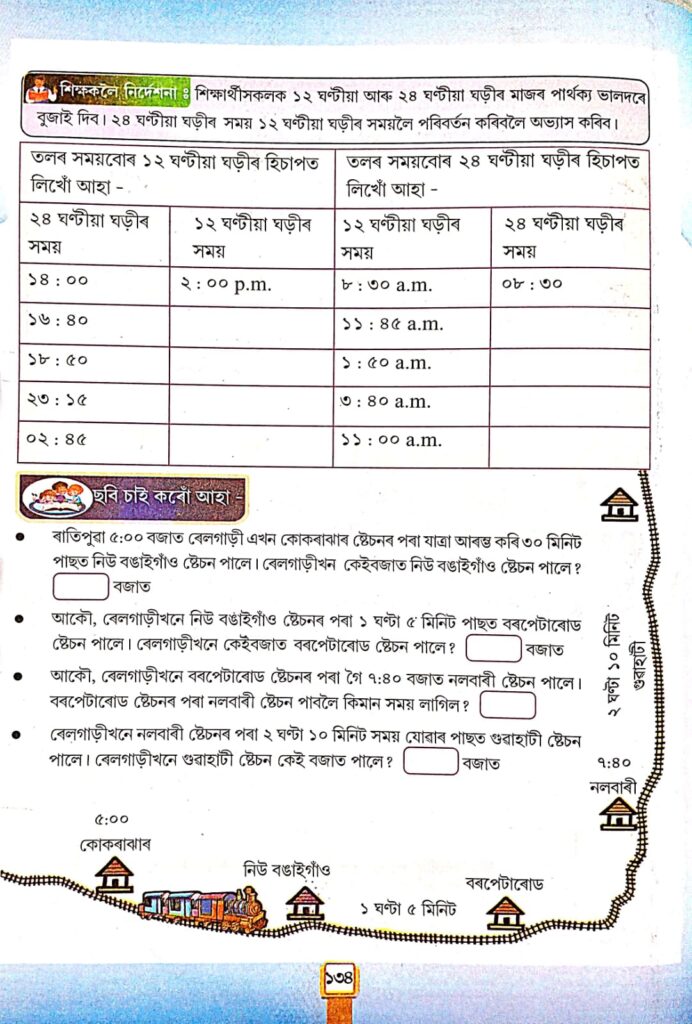 শিক্ষকলৈ নিৰ্দেশনা : শিক্ষাৰ্থীসকলক ১২ ঘণ্টীয়া আৰু ২৪ ঘণ্টীয়া ঘড়ীৰ মাজৰ পাৰ্থক্য ভালদৰে
বুজাই দিব। ২৪ ঘণ্টীয়া ঘড়ীৰ সময় ১২ ঘণ্টীয়া ঘড়ীৰ সময়লৈ পৰিবৰ্তন কৰিবলৈ অভ্যাস কৰিব।
তলৰ সময়বোৰ ১২ ঘণ্টীয়া ঘড়ীৰ হিচাপত
লিখোঁ আহা -
তলৰ সময়বোৰ ২৪ ঘণ্টীয়া ঘড়ীৰ হিচাপত
লিখোঁ আহা -
২৪ ঘণ্টীয়া ঘড়ীৰ
সময়
১২ ঘণ্টীয়া ঘড়ীৰ
সময়
১২ ঘণ্টীয়া ঘড়ীৰ
সময়
২৪ ঘণ্টীয়া ঘড়ীৰ
সময়
১৪ : ০০ ২ : ০০ p.m. ৮ : ৩০ a.m. ০৮ : ৩০
১৬ : ৪০ ১১ : ৪৫ a.m.
১৮ : ৫০ ১ : ৫০ a.m.
২৩ : ১৫ ৩ : ৪০ a.m.
০২ : ৪৫ ১১ : ০০ a.m.
ছবি চাই কৰোঁ আহা -
ৰাতিপুৱা ৫:০০ বজাত ৰেলগাড়ী এখন কোকৰাঝাৰ ষ্টেচনৰ পৰা যাত্ৰা আৰম্ভ কৰি ৩০ মিনিট
পাছত নিউ বঙাইগাঁও ষ্টেচন পালে। ৰেলগাড়ীখন কেইবজাত নিউ বঙাইগাঁও ষ্টেচন পালে?
বজাত
আকৌ, ৰেলগাড়ীখনে নিউ বঙাইগাঁও ষ্টেচনৰ পৰা ১ ঘণ্টা ৫ মিনিট পাছত বৰপেটাৰোড
ষ্টেচন পালে। ৰেলগাড়ীখনে কেইবজাত বৰপেটাৰোড ষ্টেচন পালে? বজাত
আকৌ, ৰেলগাড়ীখনে বৰপেটাৰোড ষ্টেচনৰ পৰা গৈ ৭:৪০ বজাত নলবাৰী ষ্টেচন পালে।
বৰপেটাৰোড ষ্টেচনৰ পৰা নলবাৰী ষ্টেচন পাবলৈ কিমান সময় লাগিল?
ৰেলগাড়ীখনে নলবাৰী ষ্টেচনৰ পৰা ২ ঘণ্টা ১০ মিনিট সময় যোৱাৰ পাছত গুৱাহাটী ষ্টেচন
পালে। ৰেলগাড়ীখনে গুৱাহাটী ষ্টেচন কেই বজাত পালে? বজাত
২ ঘণ্টা ১০ মিনিট
গুৱাহাটী
৭:৪০
নলবাৰী
৫:০০
কোকৰাঝাৰ
নিউ বঙাইগাঁও
বৰপেটাৰোড
১ ঘণ্টা ৫ মিনিট
১৩৪